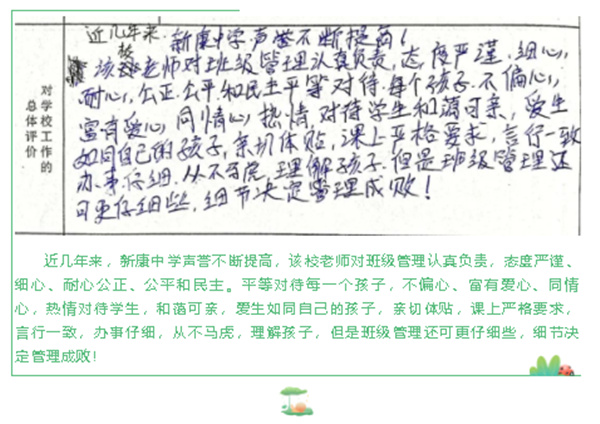 对学校工作的
总体评价
近几年来.新康中学声誉不断提高!
该校老师对班级管理认真负责,态度严谨.细心,
耐心,公正.公平和民主平等对待.每个孩子.不偏心,
富有爱心,同情心,热情.对待学生和蔼可亲,爱生
如同自己的孩子,亲切体贴,课上严格要求,言行一致
办事仔细.从不马虎,理解孩子.但是班级管理还
可更仔细些,细节决定管理成败!
近几年来,新康中学声誉不断提高,该校老师对班级管理认真负责,态度严谨、
细心、耐心公正、公平和民主。平等对待每一个孩子,不偏心、富有爱心、同情
心,热情对待学生,和蔼可亲,爱生如同自己的孩子,亲切体贴,课上严格要求,
言行一致,办事仔细,从不马虎,理解孩子,但是班级管理还可更仔细些,细节决
定管理成败!